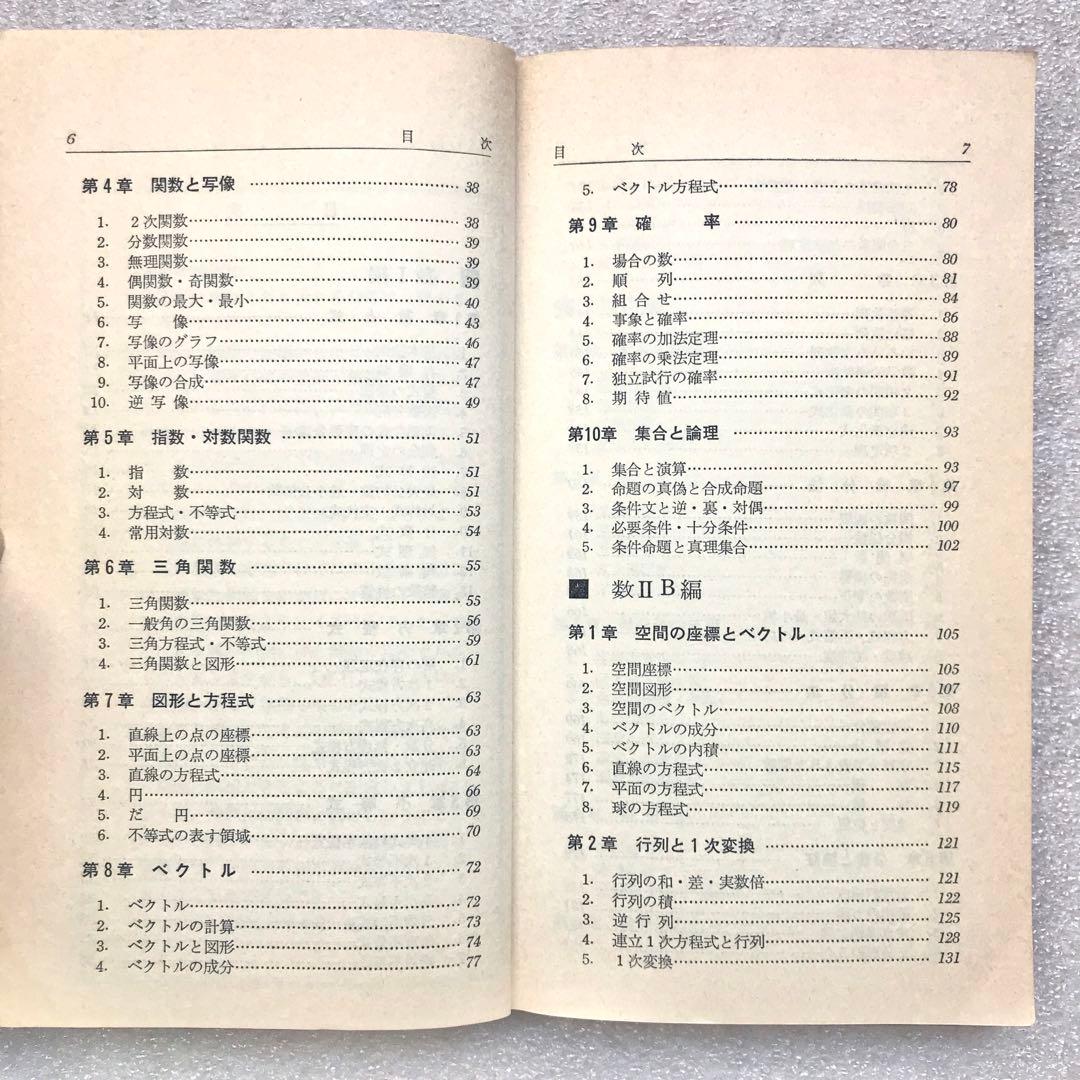 6 目次
第4章 関数と写像 38
1. 2次関数 38
2. 分数関数 39
3. 無理関数 39
4. 偶関数・奇関数 39
5. 関数の最大・最小 40
6. 写像 43
7. 写像のグラフ 46
8. 平面上の写像 47
9. 写像の合成 47
10. 逆写像 49
第5章 指数・対数関数 51
1. 指数 51
2. 対数 51
3. 方程式・不等式 53
4. 常用対数 54
第6章 三角関数 55
1. 三角関数 55
2. 一般角の三角関数 56
3. 三角方程式・不等式 59
4. 三角関数と図形 61
第7章 図形と方程式 63
1. 直線上の点の座標 63
2. 平面上の点の座標 63
3. 直線の方程式 64
4. 円 66
5. だ円 69
6. 不等式の表す領域 70
第8章 ベクトル 72
1. ベクトル 72
2. ベクトルの計算 73
3. ベクトルと図形 74
4. ベクトルの成分 77
目次 7
5. ベクトル方程式 78
第9章 確率 80
1. 場合の数 80
2. 順列 81
3. 組合せ 84
4. 事象と確率 86
5. 確率の加法定理 88
6. 確率の乗法定理 89
7. 独立試行の確率 91
8. 期待値 92
第10章 集合と論理 93
1. 集合と演算 93
2. 命題の真偽と合成命題 97
3. 条件文と逆・裏・対偶 99
4. 必要条件・十分条件 100
5. 条件命題と真理集合 102
数ⅡB編
第1章 空間の座標とベクトル 105
1. 空間座標 105
2. 空間図形 107
3. 空間のベクトル 108
4. ベクトルの成分 110
5. ベクトルの内積 111
6. 直線の方程式 115
7. 平面の方程式 117
8. 球の方程式 119
第2章 行列と1次変換 121
1. 行列の和・差・実数倍 121
2. 行列の積 122
3. 逆行列 125
4. 連立1次方程式と行列 128
5. 1次変換 131